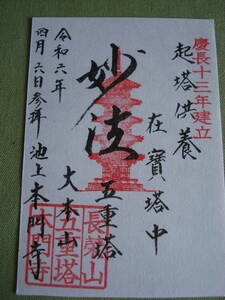 慶長十三年建立
起塔供養
在寳塔中
妙法
五重塔
大本山
池上本門寺
令和六年
四月六日参拝
長榮山
五重塔
本門寺